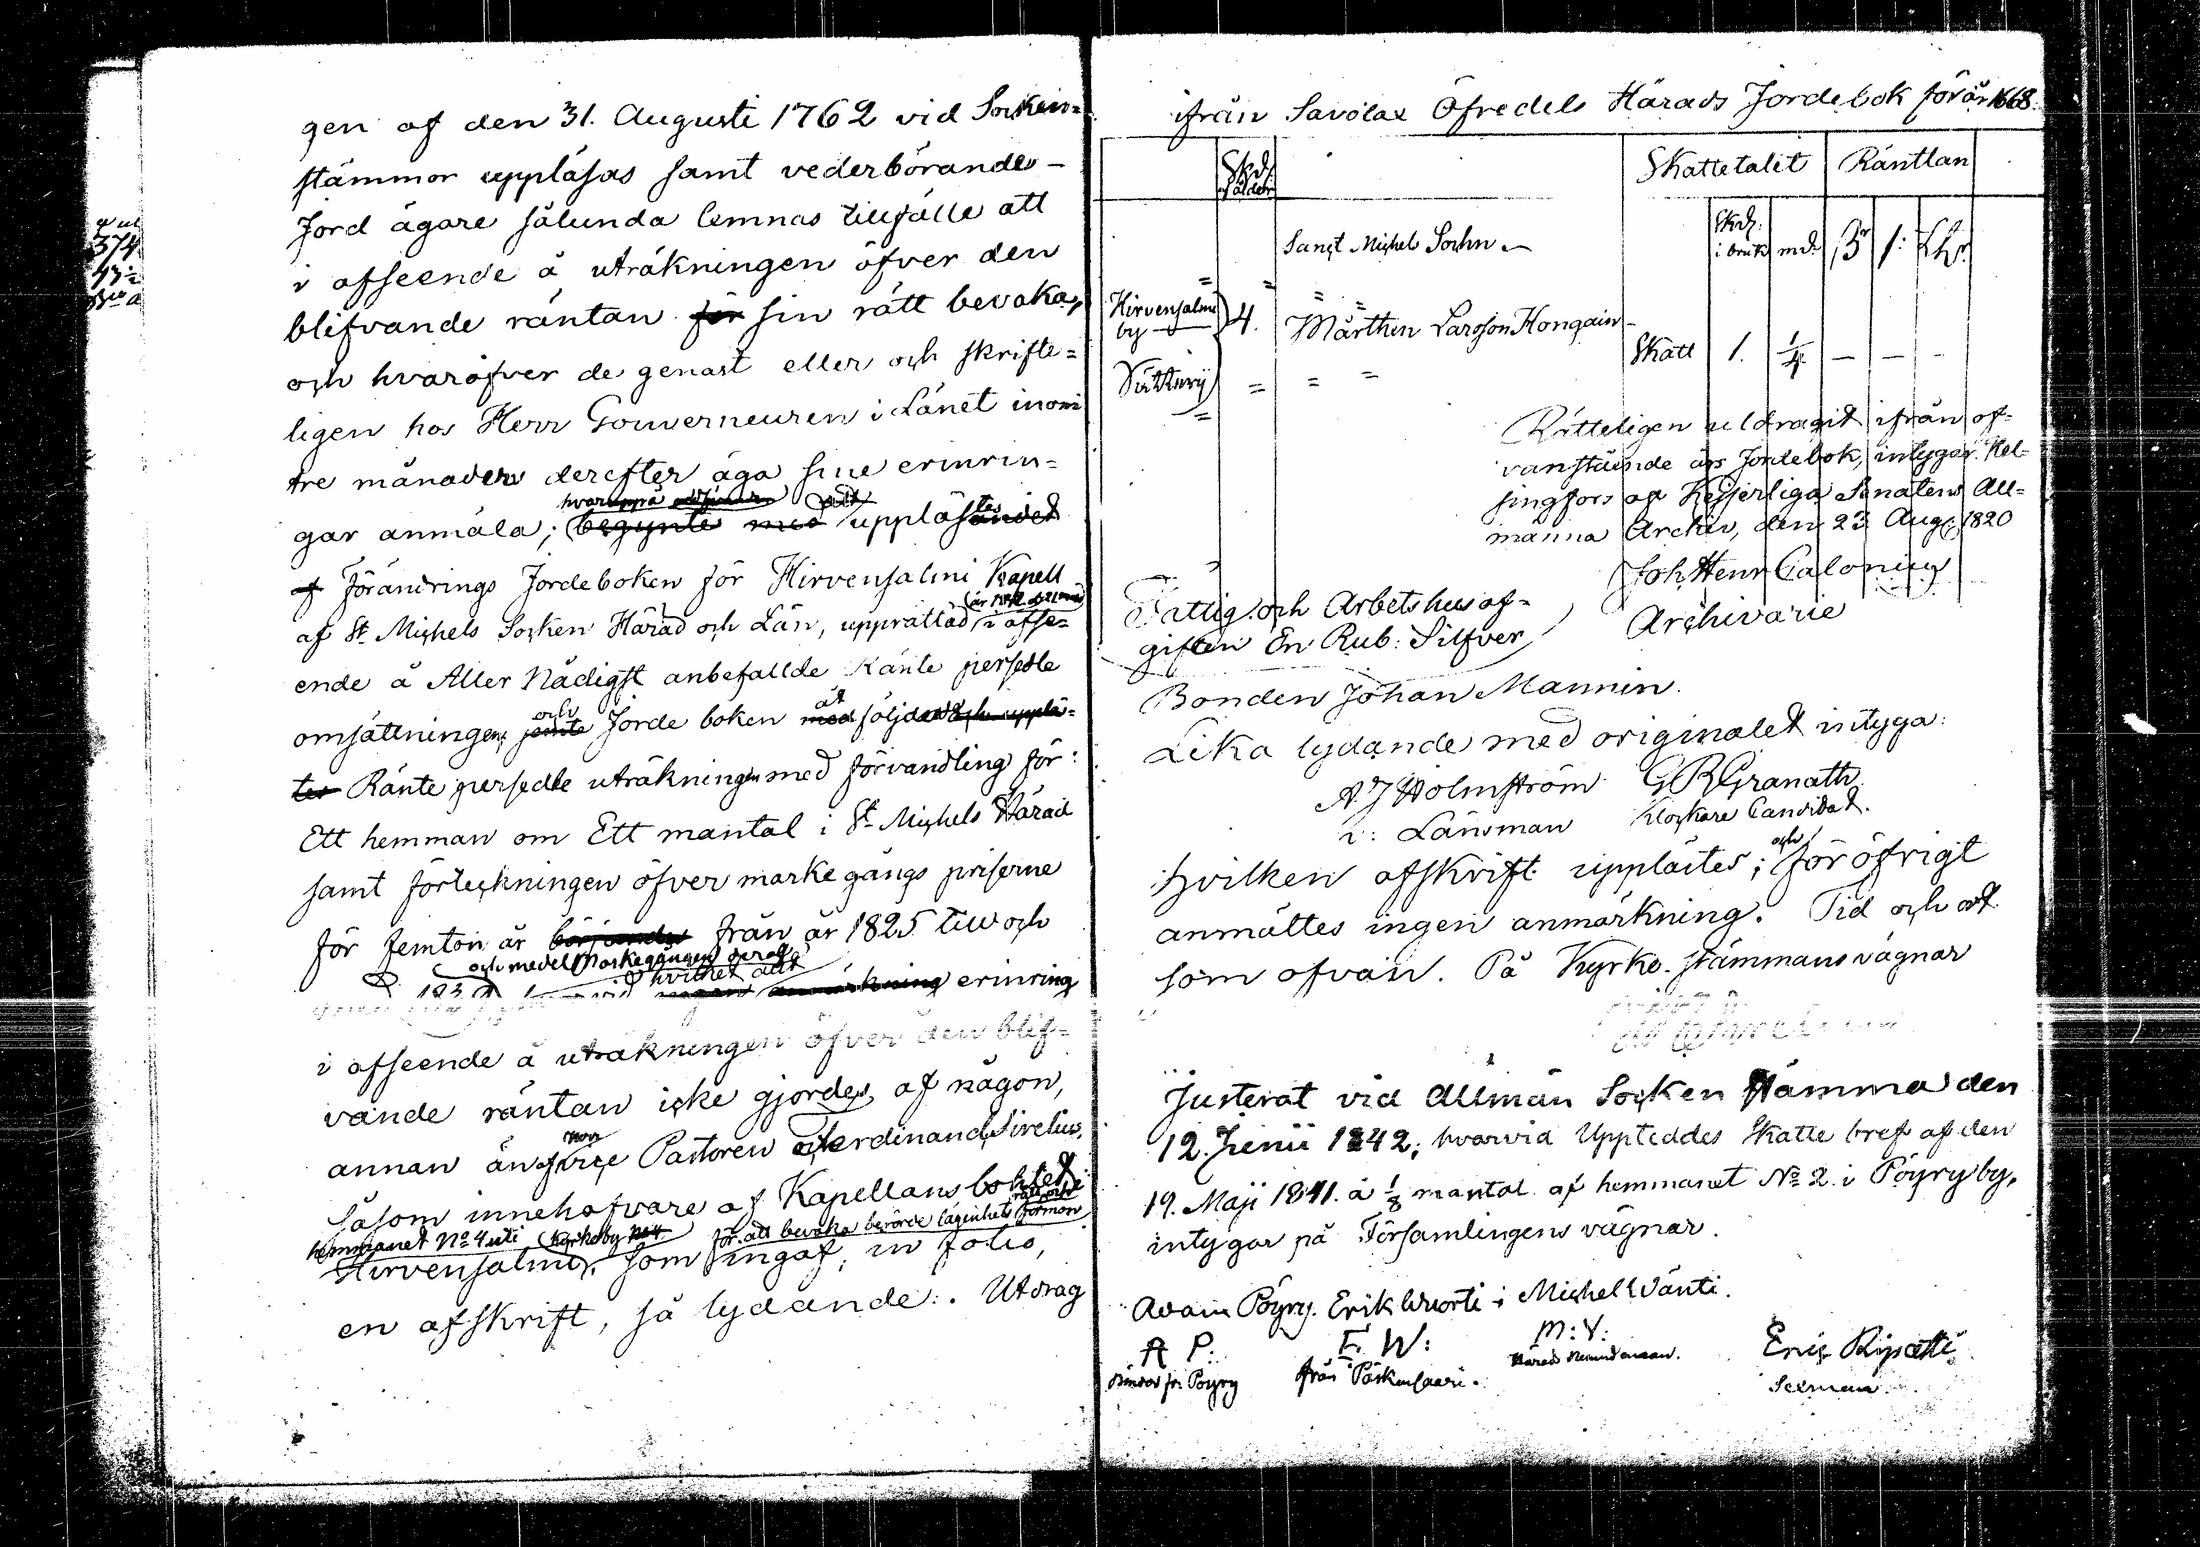 gen af den 31. Augusti 1762 vid Socken=
stämmor uppläsas samt vederbörande
Jord ägare sålunda lemnas tillfälle att
i afseende å uträkningen öfver den
blifvande räntan för sin rätt bevaka,
och hvaröfver de genast eller och skrifte=
ligen hos Herr Gouverneuren i Länet inom
tre månader derefter äga sine erinrin=
hvaruppå
gar anmäla; begynte med uppläsandet
af förändrings Jordeboken för Hirvensalmi Kapell
af St. Michels Socken Härad och Län, upprättad i afse=
ende å Aller Nådigst anbefallde Ränte persedle
och
omsättningen, jemte Jorde boken med följder & upplä=
tes Ränte persedle uträkningen med förvandling för:
Ett hemman om Ett mantal i St. Michels Härad
samt förteckningen öfver markegångs priserne
för femton år började från år 1825 till och
och medel Markegången deraf
hvilket allt
hvarvid ingen anmärkning erinring
i afseende å uträkningen öfver den blif=
vande räntan icke gjordes af någon,
annan än vice Pastoren Ferdinand Sirelius,
Såsom innehafvare af Kapellans bohlet
hemmanet No 4 uti Kyrkoby No 4. för att bevaka berörde lägenhets förmon
Hirvensalmi, som ingaf, in folio,
en afskrift, så lydande: Utdrag
374
ifrån Savolax Öfredels Härads Jordebok för år 1668.
Skattetalet Räntan
Sanct Michels Sochn
i bruk md.
Hirvensalmi
by 4. Mårthen Larsson Hongain
Skatt 1. 1/4 — — —
Rätteligen utdragit ifrån of=
vanstående års Jordebok, intygar. Hel=
singfors af Kejserliga Senatens All=
männa Archiv, den 23 Aug. 1820
Joh. Henr. Calonius
Archivarie
Fattig och Arbetshus af=
giften En Rub: Silfver
Bonden Johan Mannin.
Lika lydande med originalet intyga:
A J Holmström G R Granath
v: Länsman Klockare Candidat.
och
hvilken afskrift upplästes; för öfrigt
anmältes ingen anmärkning. Tid och ort
som ofvan. På Kyrko-stämmans vägnar
Justerat vid Allmän Socken Stämma den
12. Junii 1842; hvarvid Uppteddes Skatte bref af den
19. Maji 1841. å 1/8 mantal af hemmanet No 2. i Pöyry by,
intygar på Församlingens vägnar.
Adam Pöyry. Erik Wuorti i Michel Vänti.
A P: E. W: M: V:
Bonde fr. Pöyry från Päskensaari. Härads Nämndeman.
Eric Ripatti